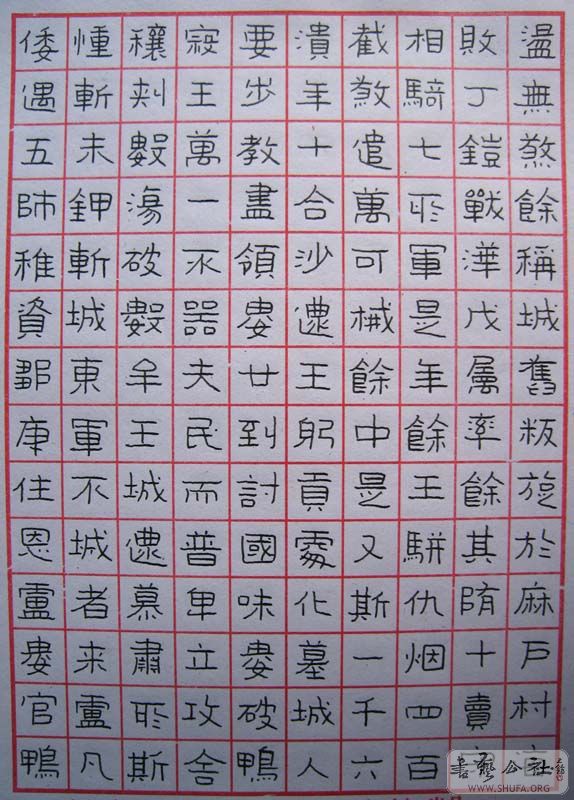 盪無煞餘稱城舊粄旋於麻戶村
敗丁鎧戰戊属率餘其隋十賣
相騎七所軍是年餘王駢仇烟四百
截煞遣萬可械餘中是又斯一千六
潰年十合沙王躬貢處化墓城人
要步教盡領婁廿到討國味婁破鴨
寂王萬一永器夫民而普卑立攻舍
穰數破數牟王城慕肅所斯
憧斬未鉀斬城東軍不城者来盧凡
倭遇五師稚資鄒住恩盧婁官鴨
書藝公社
WWW.SHUFA.ORG